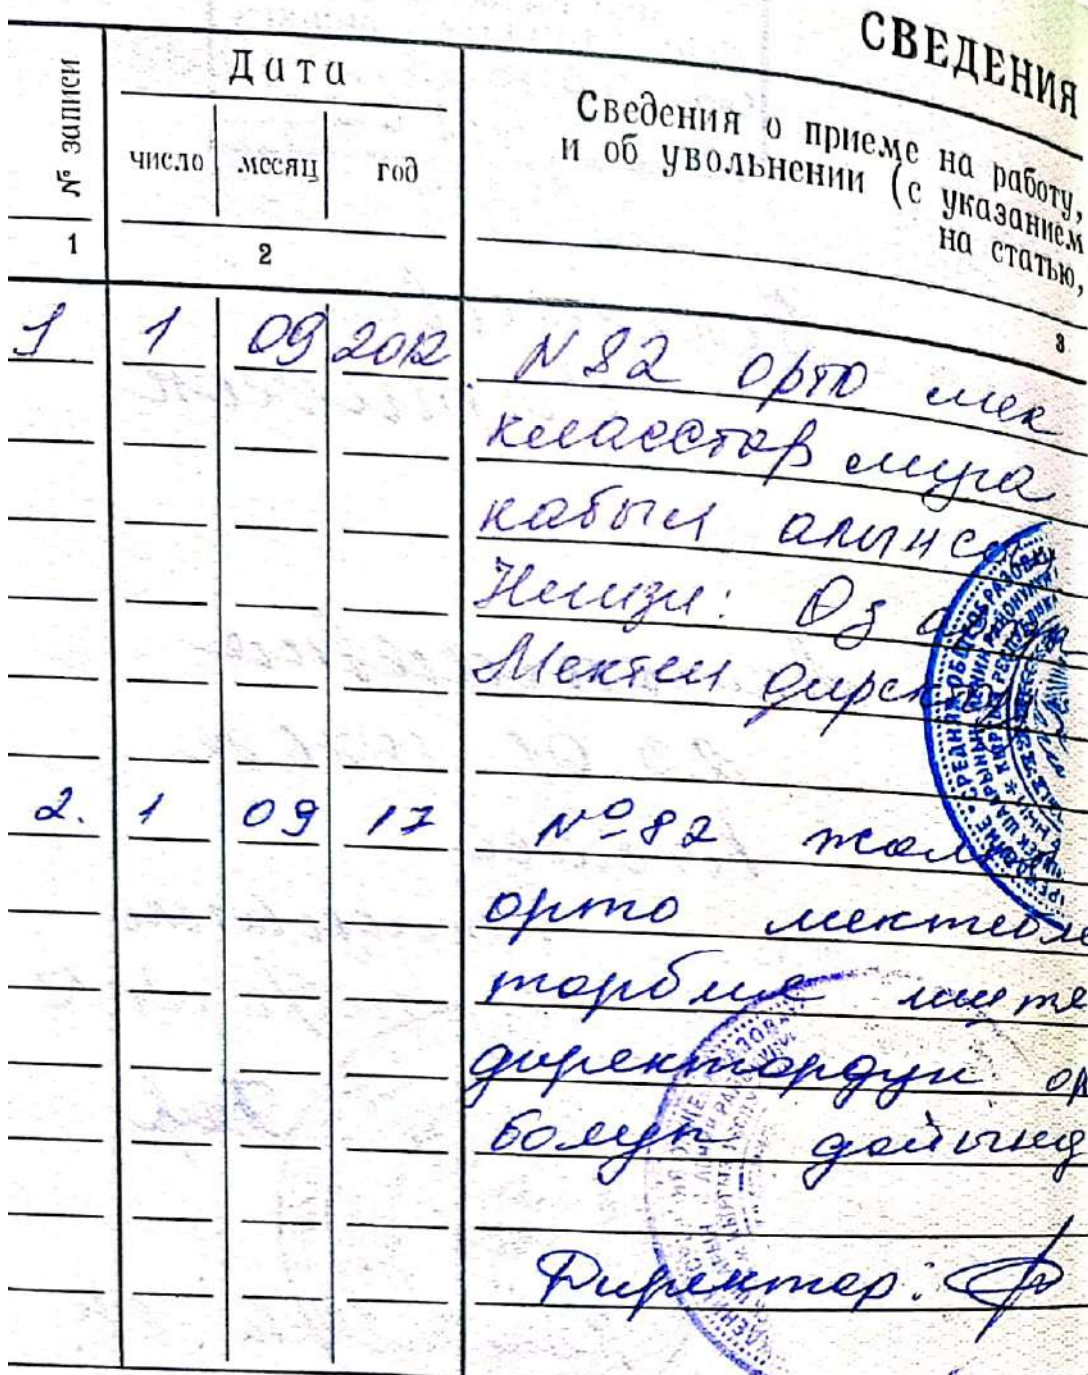 СВЕДЕНИЯ
№ записи
Дата
число месяц год
Сведения о приеме на работу,
и об увольнении (с указанием
на статью,
1 2 3
1. 1 09 2012 N 82 орто мек
класстар муга
кабыл алынса
Негизи: Өз
Мектеп директору
2. 1 09 17 № 82 жал
орто мектебле
тарбия иште
директордун ор
болуп дайынд
Директор: